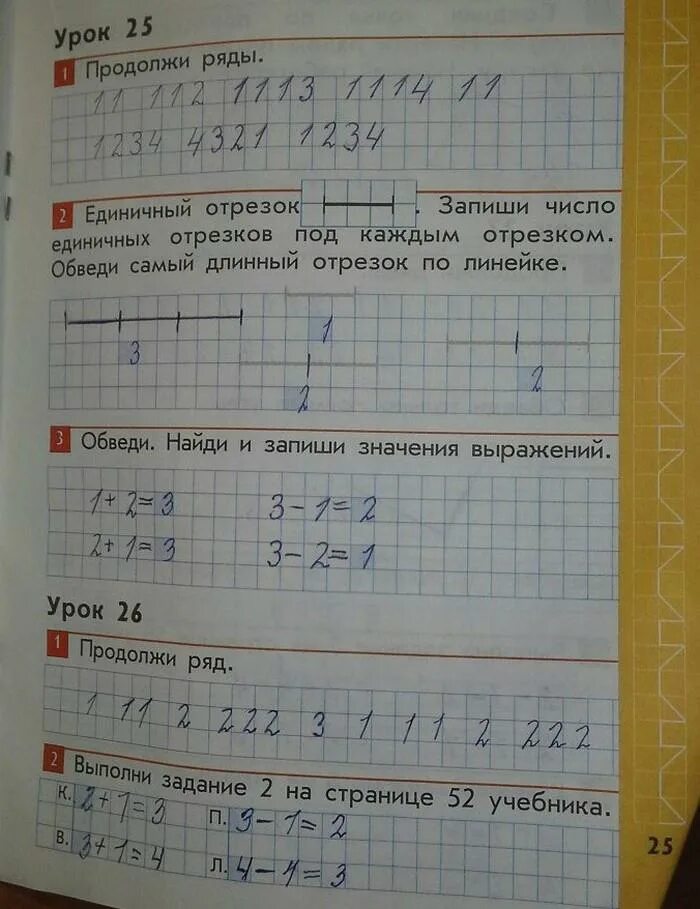 Урок 25
1 Продолжи ряды.
11 112 1113 1114 11
1234 4321 1234
2 Единичный отрезок . Запиши число
единичных отрезков под каждым отрезком.
Обведи самый длинный отрезок по линейке.
1
3
2
2
3 Обведи. Найди и запиши значения выражений.
1+2=3 3-1=2
2+1=3 3-2=1
Урок 26
1 Продолжи ряд.
1 11 2 222 3 1 11 2 222
2 Выполни задание 2 на странице 52 учебника.
к. 2+1=3 п. 3-1=2
в. 3+1=4 л. 4-1=3
25